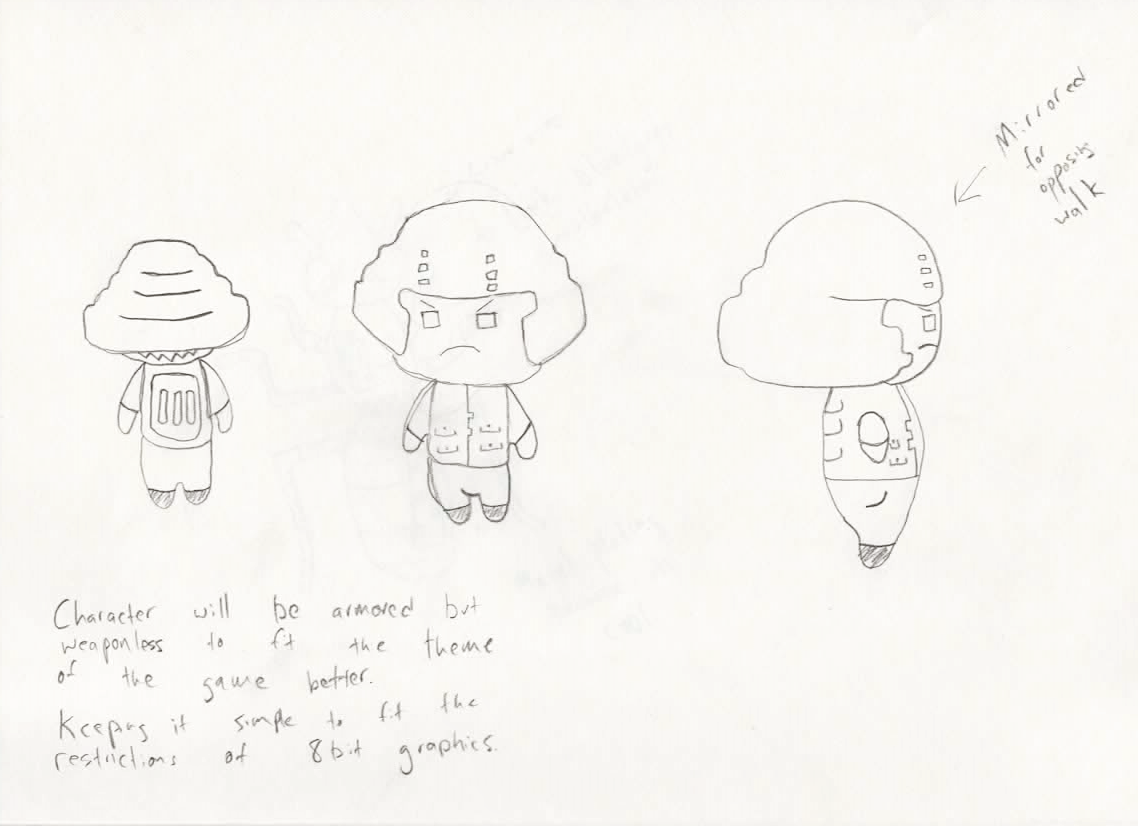 Mirrored
for
opposing
walk
Character will be armored but
weaponless to fit the theme
of the game better.
Keeping it simple to fit the
restrictions of 8bit graphics.